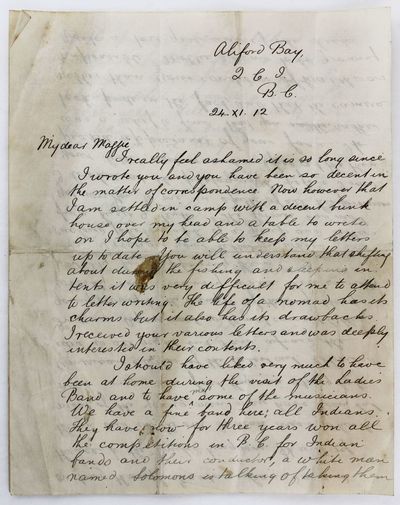 Aliford Bay,
Q. C. I.
B. C.
24. XI. 12
My dear Maggie
I really feel ashamed it is so long since
I wrote you and you have been so decent in
the matter of correspondence. Now however that
I am settled in camp with a decent bunk
house over my head and a table to write
on I hope to be able to keep my letters
up to date. You will understand that shifting
about during the fishing and sleeping in
tents it was very difficult for me to attend
to letter writing. The life of a nomad has its
charms but it also has its drawbacks
I received your various letters and was deeply
interested in their contents.
I should have liked very much to have
been at home during the visit of the Ladies
Band and to have some of the musicians.
We have a fine band here; all Indians.
They have now for three years won all
the competitions in B. C. for Indian
bands and their conductor, a white man
named Solomons is talking of taking them